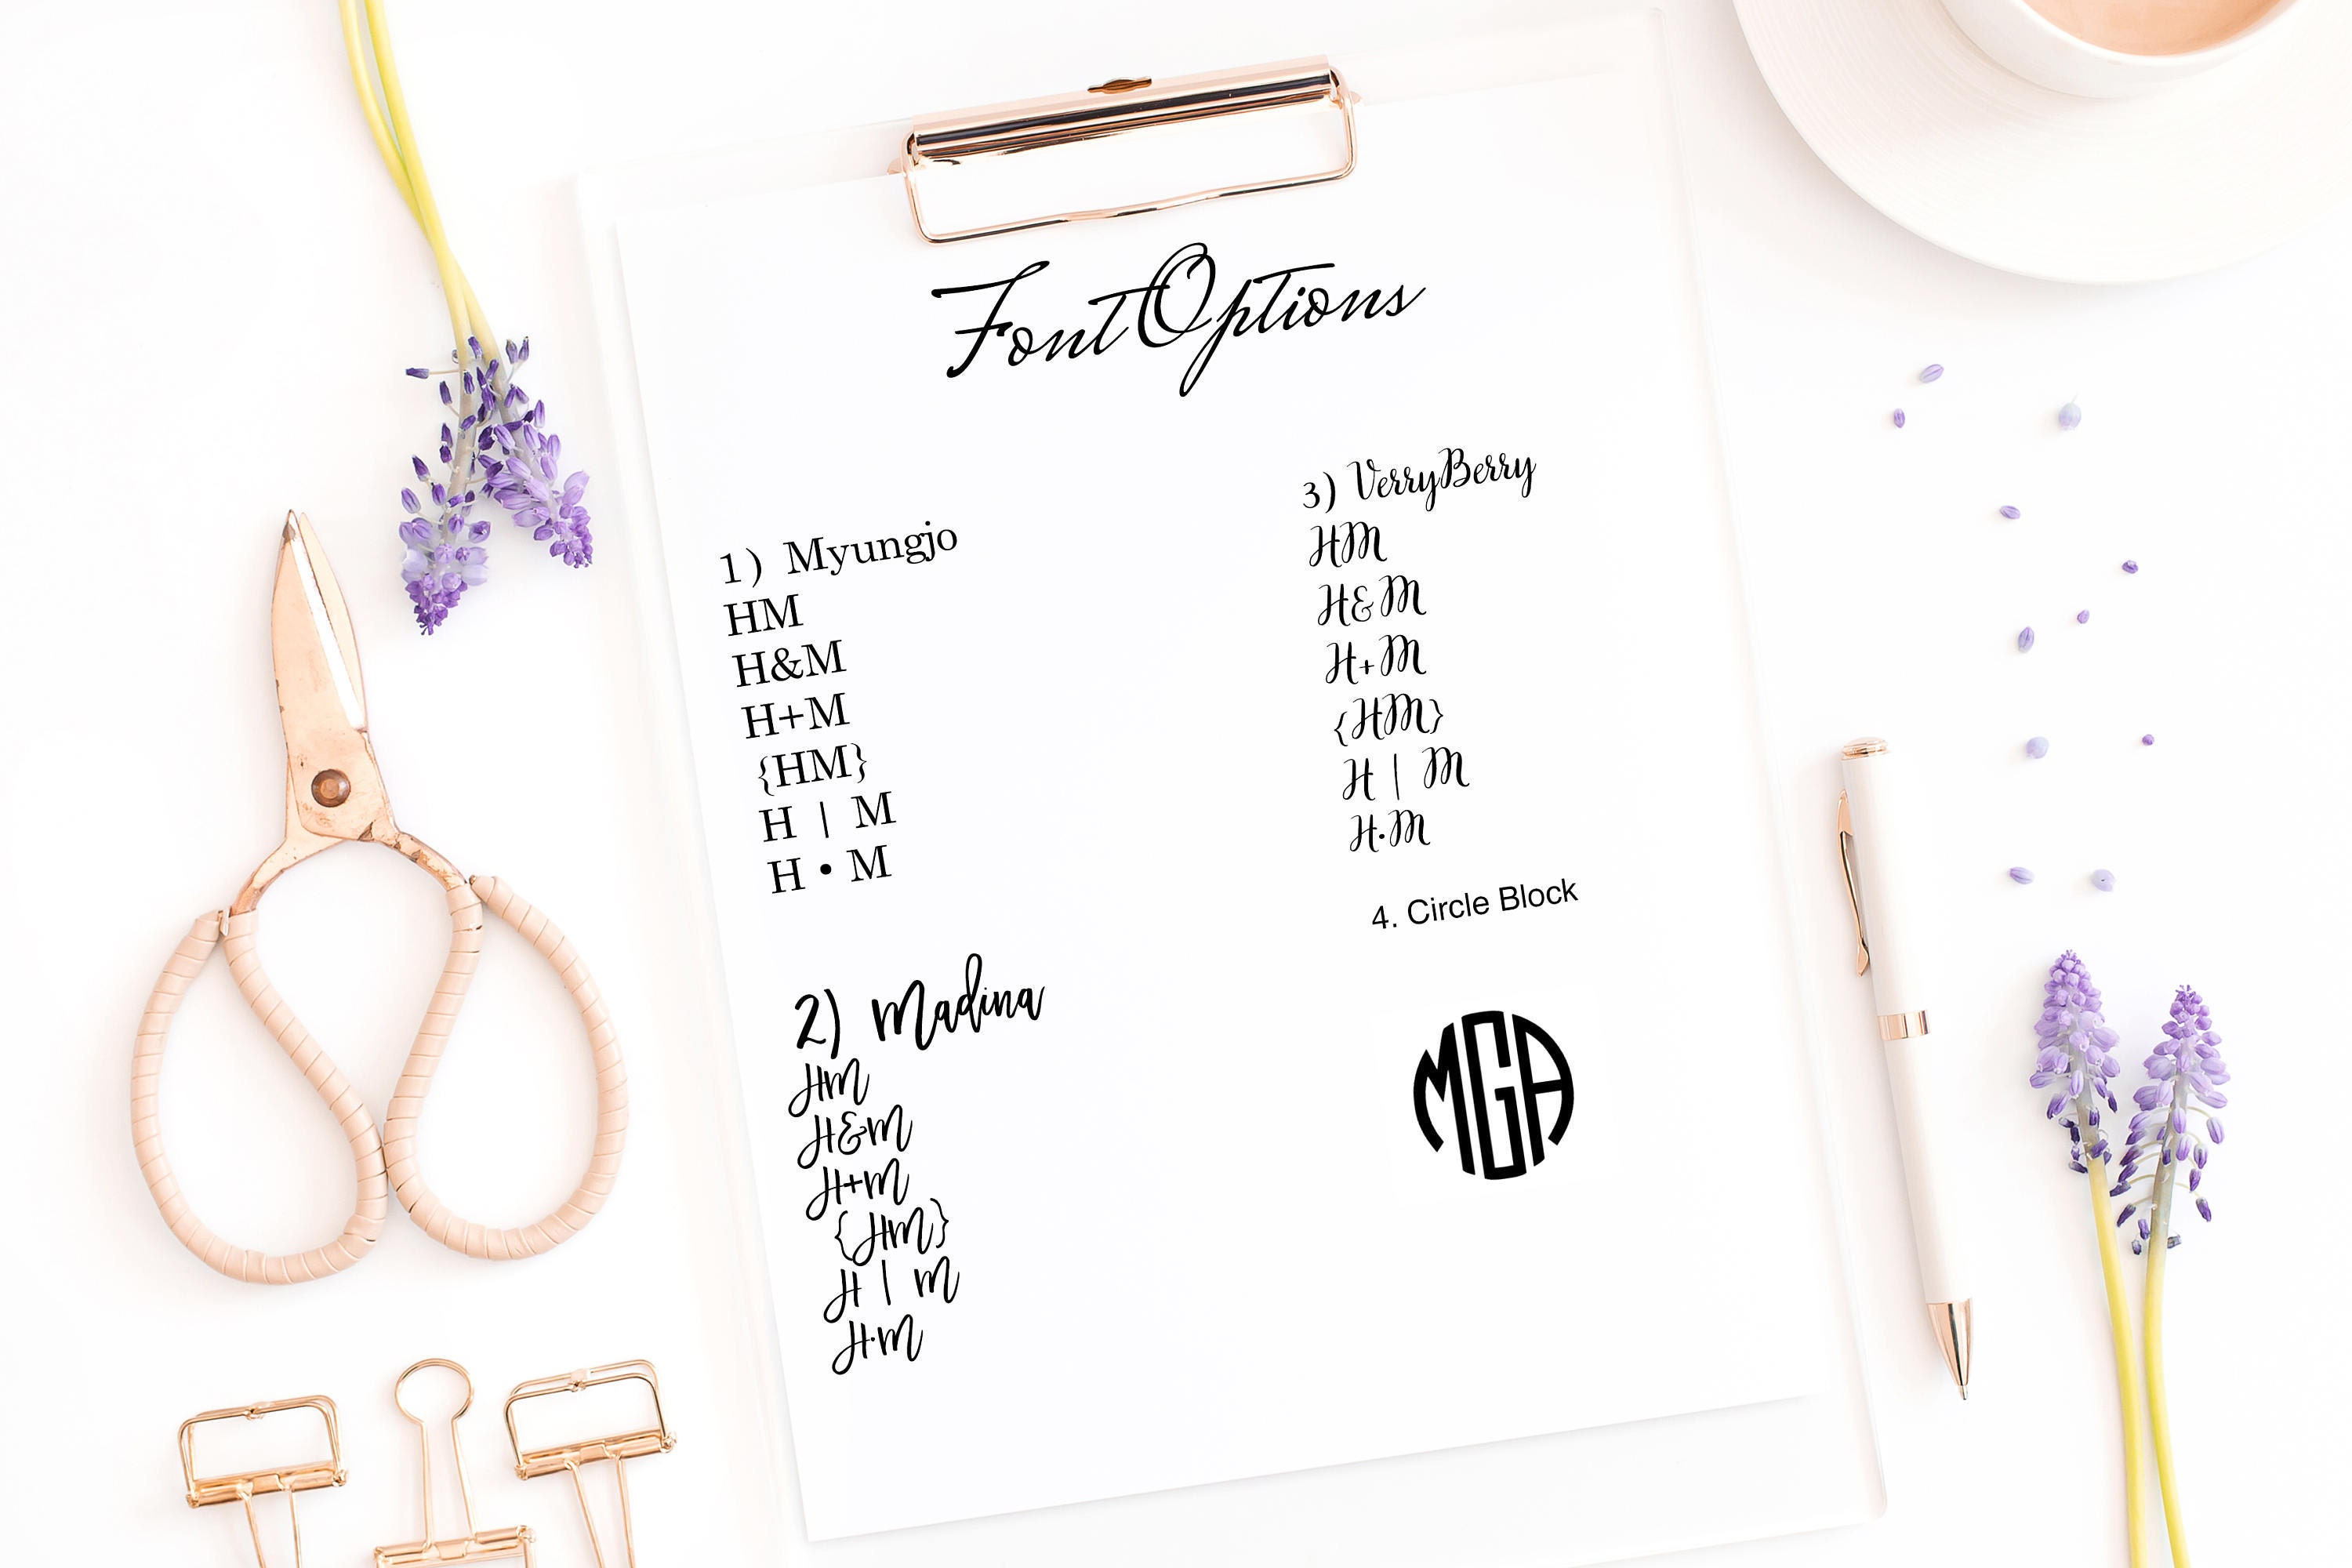 Font Options
1) Myungjo
HM
H&M
H+M
{HM}
H | M
H • M
2) Madina
HM
H&M
H+M
{HM}
H | M
H·M
3) VerryBerry
HM
H&M
H+M
{HM}
H | M
H·M
4. Circle Block
MGA